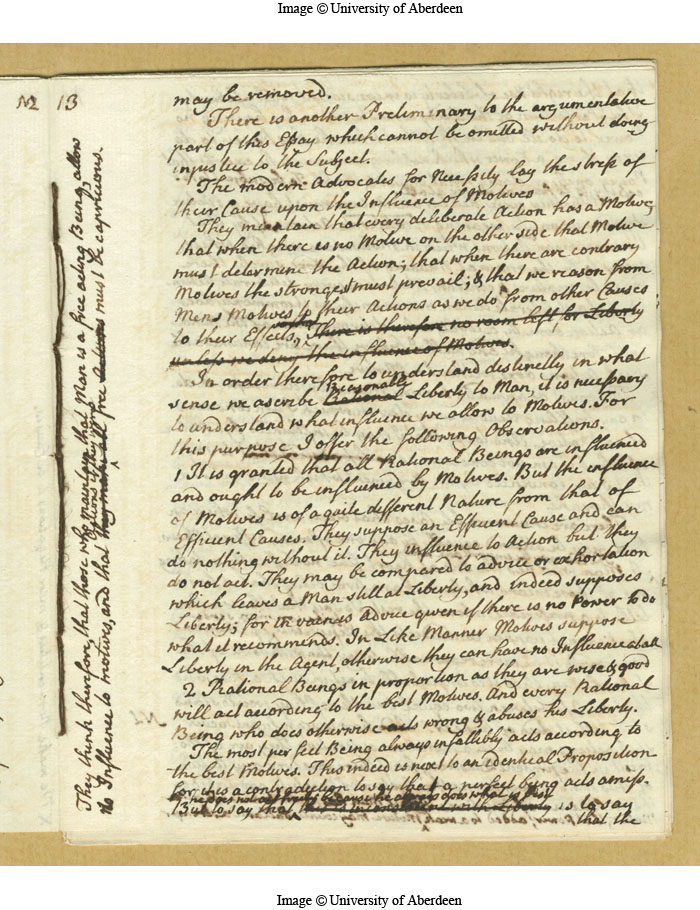 Image © University of Aberdeen
№ 2
13
may be removed.
There is another Preliminary to the argumentative
part of this Essay which cannot be omitted without doing
injustice to the Subject.
The modern Advocates for Necessity lay the stress of
their Cause upon the Influence of Motives
They mentain that every deliberate Action has a Motive,
that when there is no Motive on the other side that Motive
must determine the Action; that when there are contrary
Motives the strongest must prevail; & that we reason from
Mens Motives to their Actions as we do from other Causes
to their Effects, There is therefore no room left for Liberty
unless we deny the influence of Motives.
In order therefore to understand distinctly in what
Reasonably
sense we ascribe Rational Liberty to Man, it is necessary
to understand what influence we allow to Motives. For
this purpose I offer the following Observations.
1 It is granted that all Rational Beings are influenced
and ought to be influenced by Motives. But the influence
of Motives is of a quite different Nature from that of
Efficient Causes. They suppose an Efficient Cause and can
do nothing without it. They influence to Action but they
do not act. They may be compared to advice or exhortation
which leaves a Man still at Liberty, and indeed supposes
Liberty; for in vain is Advice given if there is no Power to do
what it recommends. In Like Manner Motives suppose
Liberty in the Agent, otherwise they can have no Influence at all
2 Rational Beings in proportion as they are wise & good
will act according to the best Motives. And every Rational
Being who does otherwise acts wrong & abuses his Liberty.
The most perfect Being always infallibly acts according to
the best Motives. This indeed is next to an identical Proposition
for it is a contradiction to say that a perfect being acts amiss.
he does not act freely because he always does what is best
But to say that is inconsistent with Liberty is to say
that the
They think therefore, that those who maintain that Man is a free acting Being, allow
Actions if they were
no Influence to motives, and that they make all free Actions must be capricious.
Image © University of Aberdeen